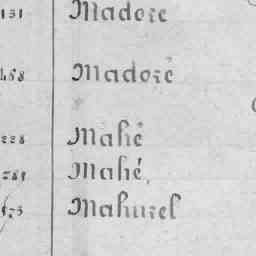 131 Madore
468 Madoré
228 Mahé
281 Mahé,
Mahurel